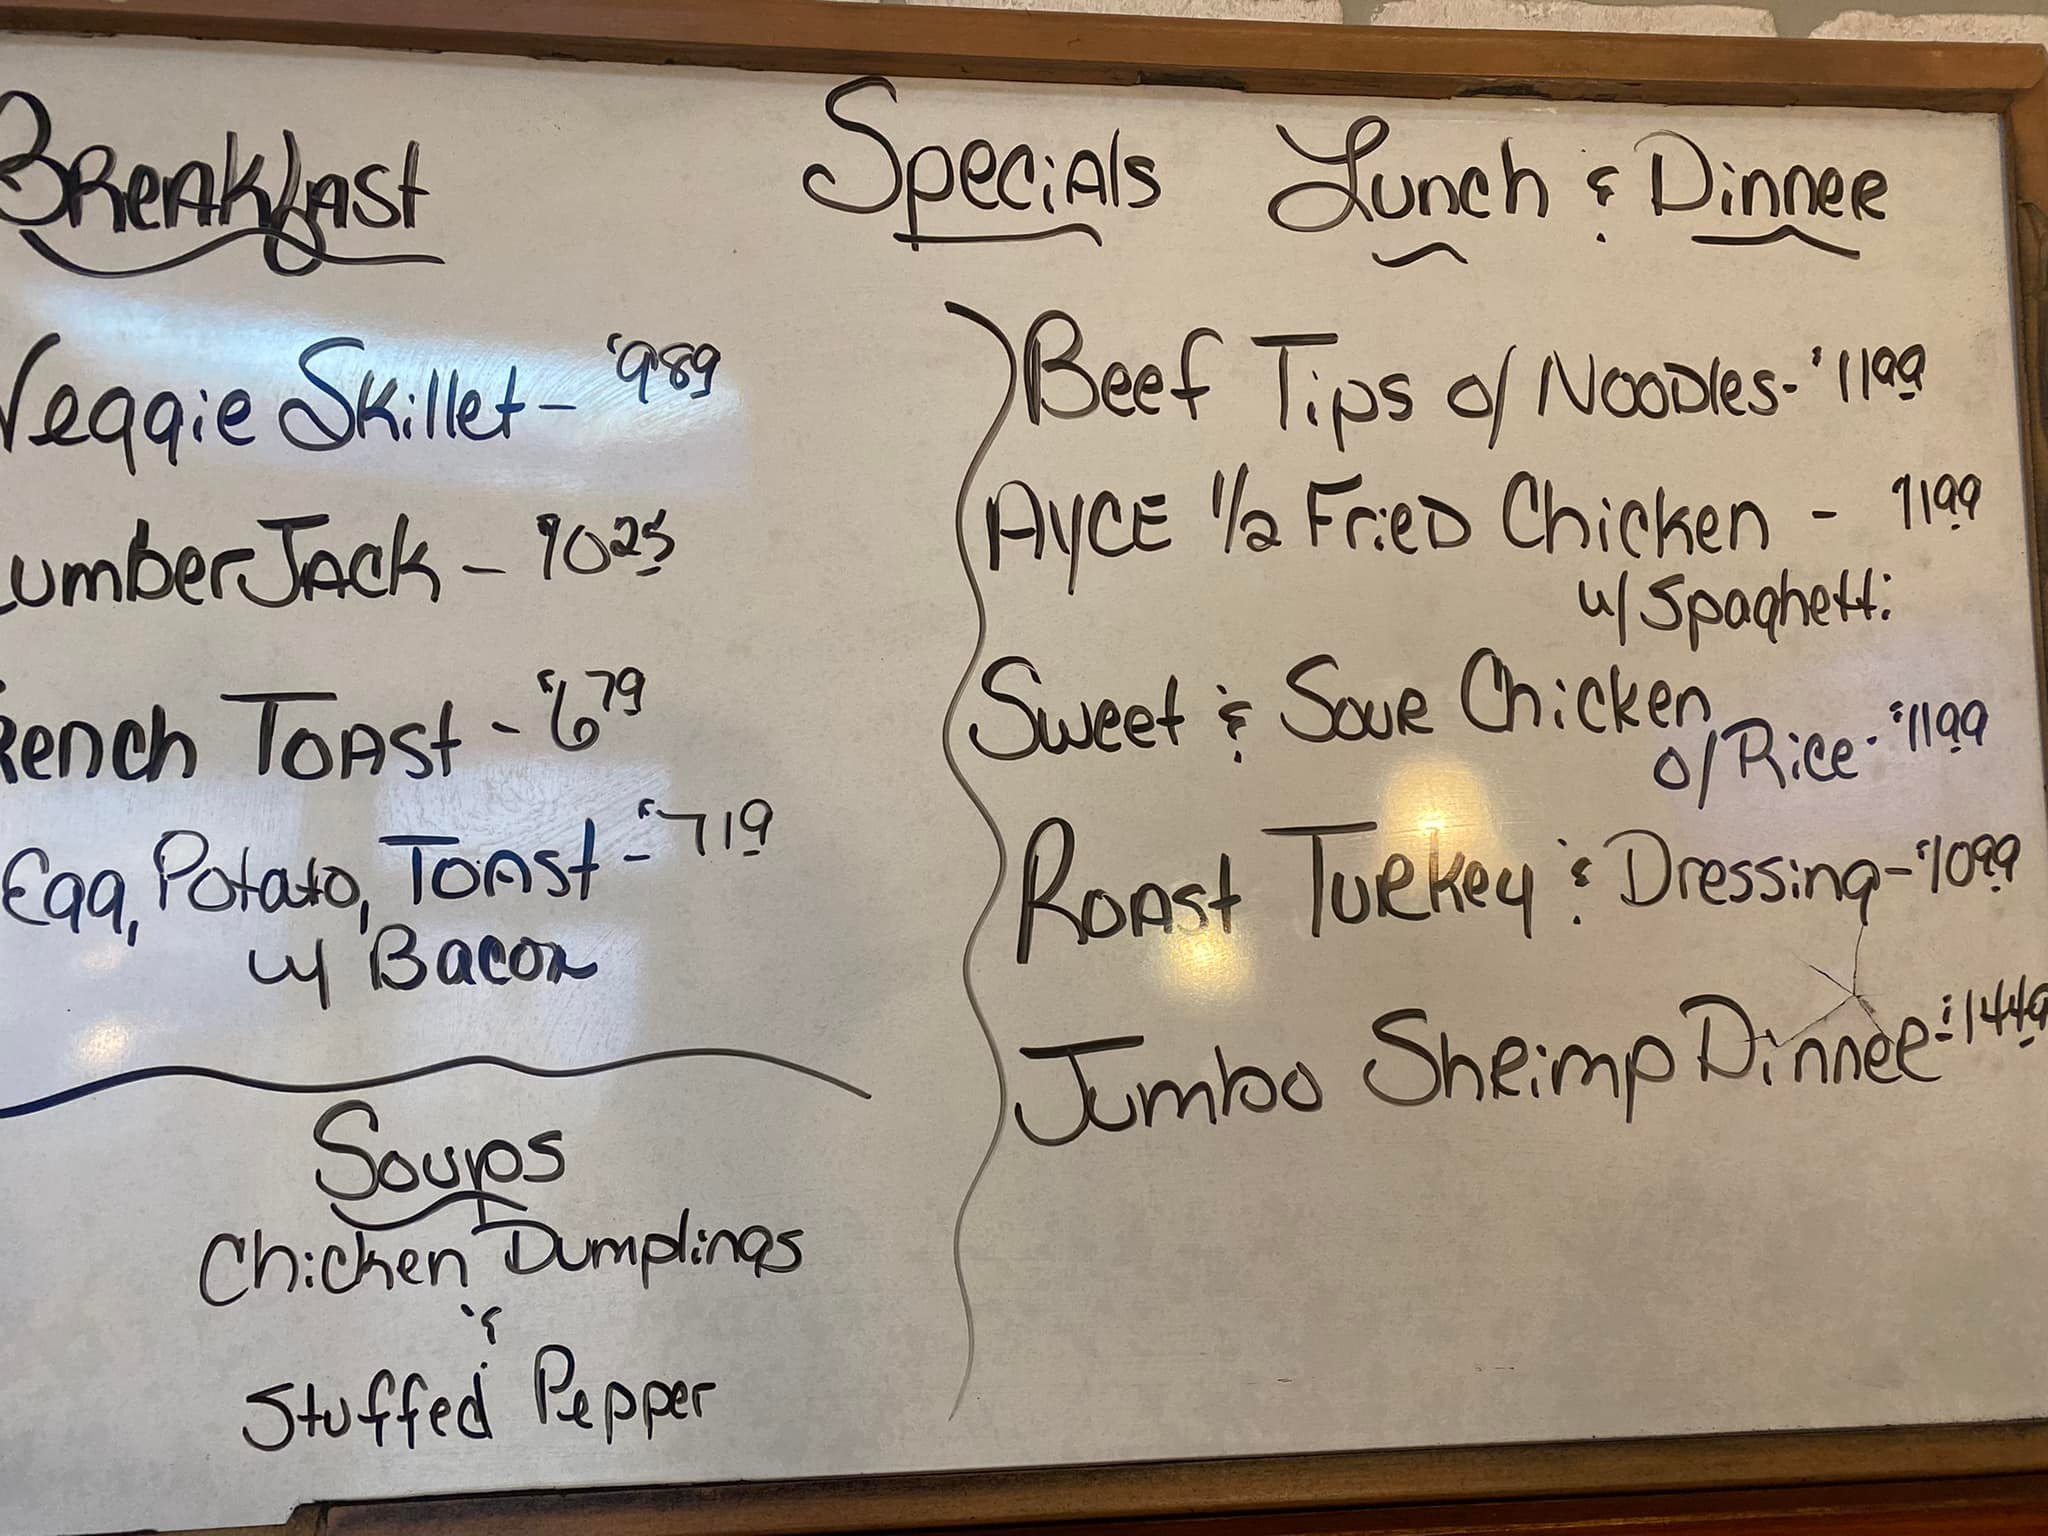 Breakfast
Specials
Lunch & Dinner
Veggie Skillet - $9.89
LumberJack - $10.25
French Toast - $6.79
Egg, Potato, Toast - $7.19
w/ Bacon
Soups
Chicken Dumplings
&
Stuffed Pepper
Beef Tips o/ Noodles - $11.99
AYCE 1/2 Fried Chicken - $11.99
w/ Spaghetti
Sweet & Sour Chicken
o/ Rice - $11.99
Roast Turkey & Dressing - $10.99
Jumbo Shrimp Dinner - $14.49